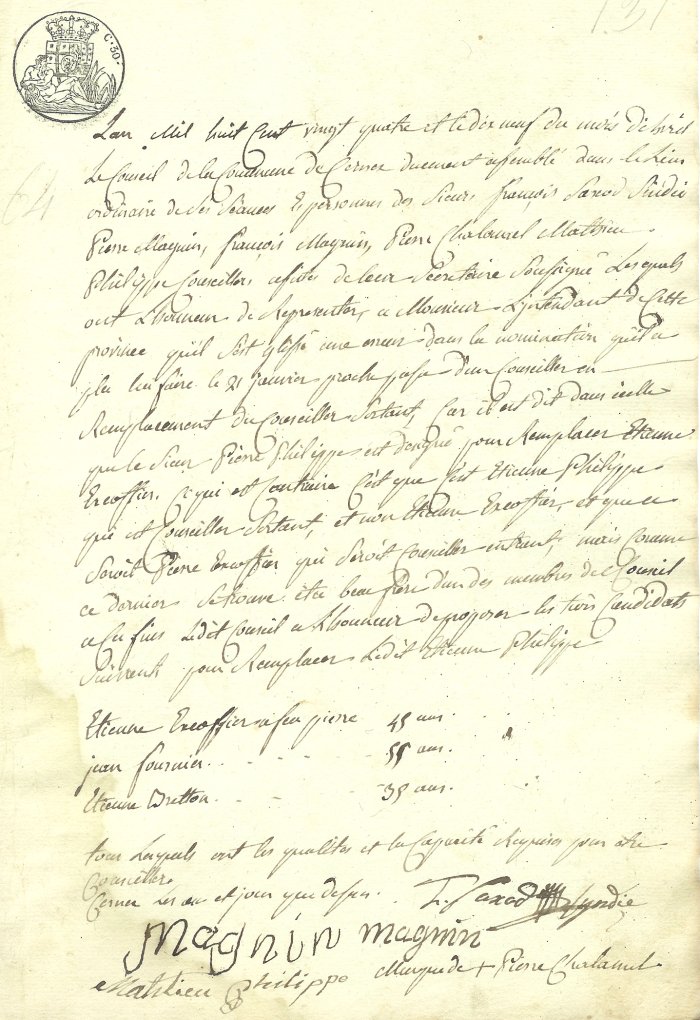 131
C. 30.
64
L'an Mil huit Cent vingt quatre et le dix neuf du mois de
Le Conseil de la Commune de Cernex duement assemblé dans le Lieu
ordinaire de ses séances Es personnes des Sieurs françois Saxod Sindic
Pierre Magnin, françois Magnin, Pierre Chalamel Mathieu
Philippe Conseillers assistés de leur Secretaire Soussigné Lesquels
ont L'honneur de Representer, a Monsieur L'intendant de Cette
province qu'il s'est glissé une erreur dans la nomination qu'il a
plu lui faire le 21 janvier proche passé d'un Conseiller en
Remplacement du Conseiller Sortant, Car il est dit dans icelle
que le Sieur Pierre Philippe est désigné pour Remplacer Etienne
Excoffier. Ce qui est Contraire C'est que C'est Etienne Philippe
qui est Conseiller Sortant, et non Etienne Excoffier, et que ce
seroit Pierre Excoffier qui seroit Conseiller entrant, mais Comme
ce dernier se trouve être beau frère d'un des membres de Conseil
a Ces fins Ledit Conseil a L'honneur de proposer les trois Candidats
Suivants pour Remplacer Ledit Etienne Philippe
Etienne Excoffier a feu pierre 45 ans.
jean fournier. 55 ans.
Etienne Bretton. 35 ans.
tous Lesquels ont les qualités et la Capacité Requises pour etre
Conseiller.
Cernex Les an et jour que dessus. f. Saxod Syndic
Magnin magnin
Mathieu Philippe Marque de + Pierre Chalamel